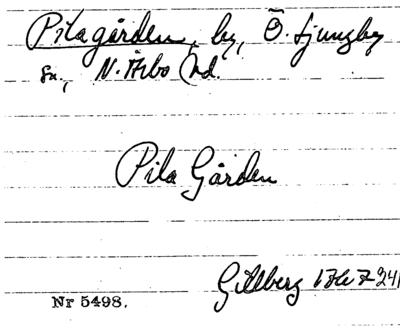 Pilagården, by, Ö. Ljungby
sn, N. Åsbo hd.
Pila Gården
Gillberg 1767 241
Nr 5498.